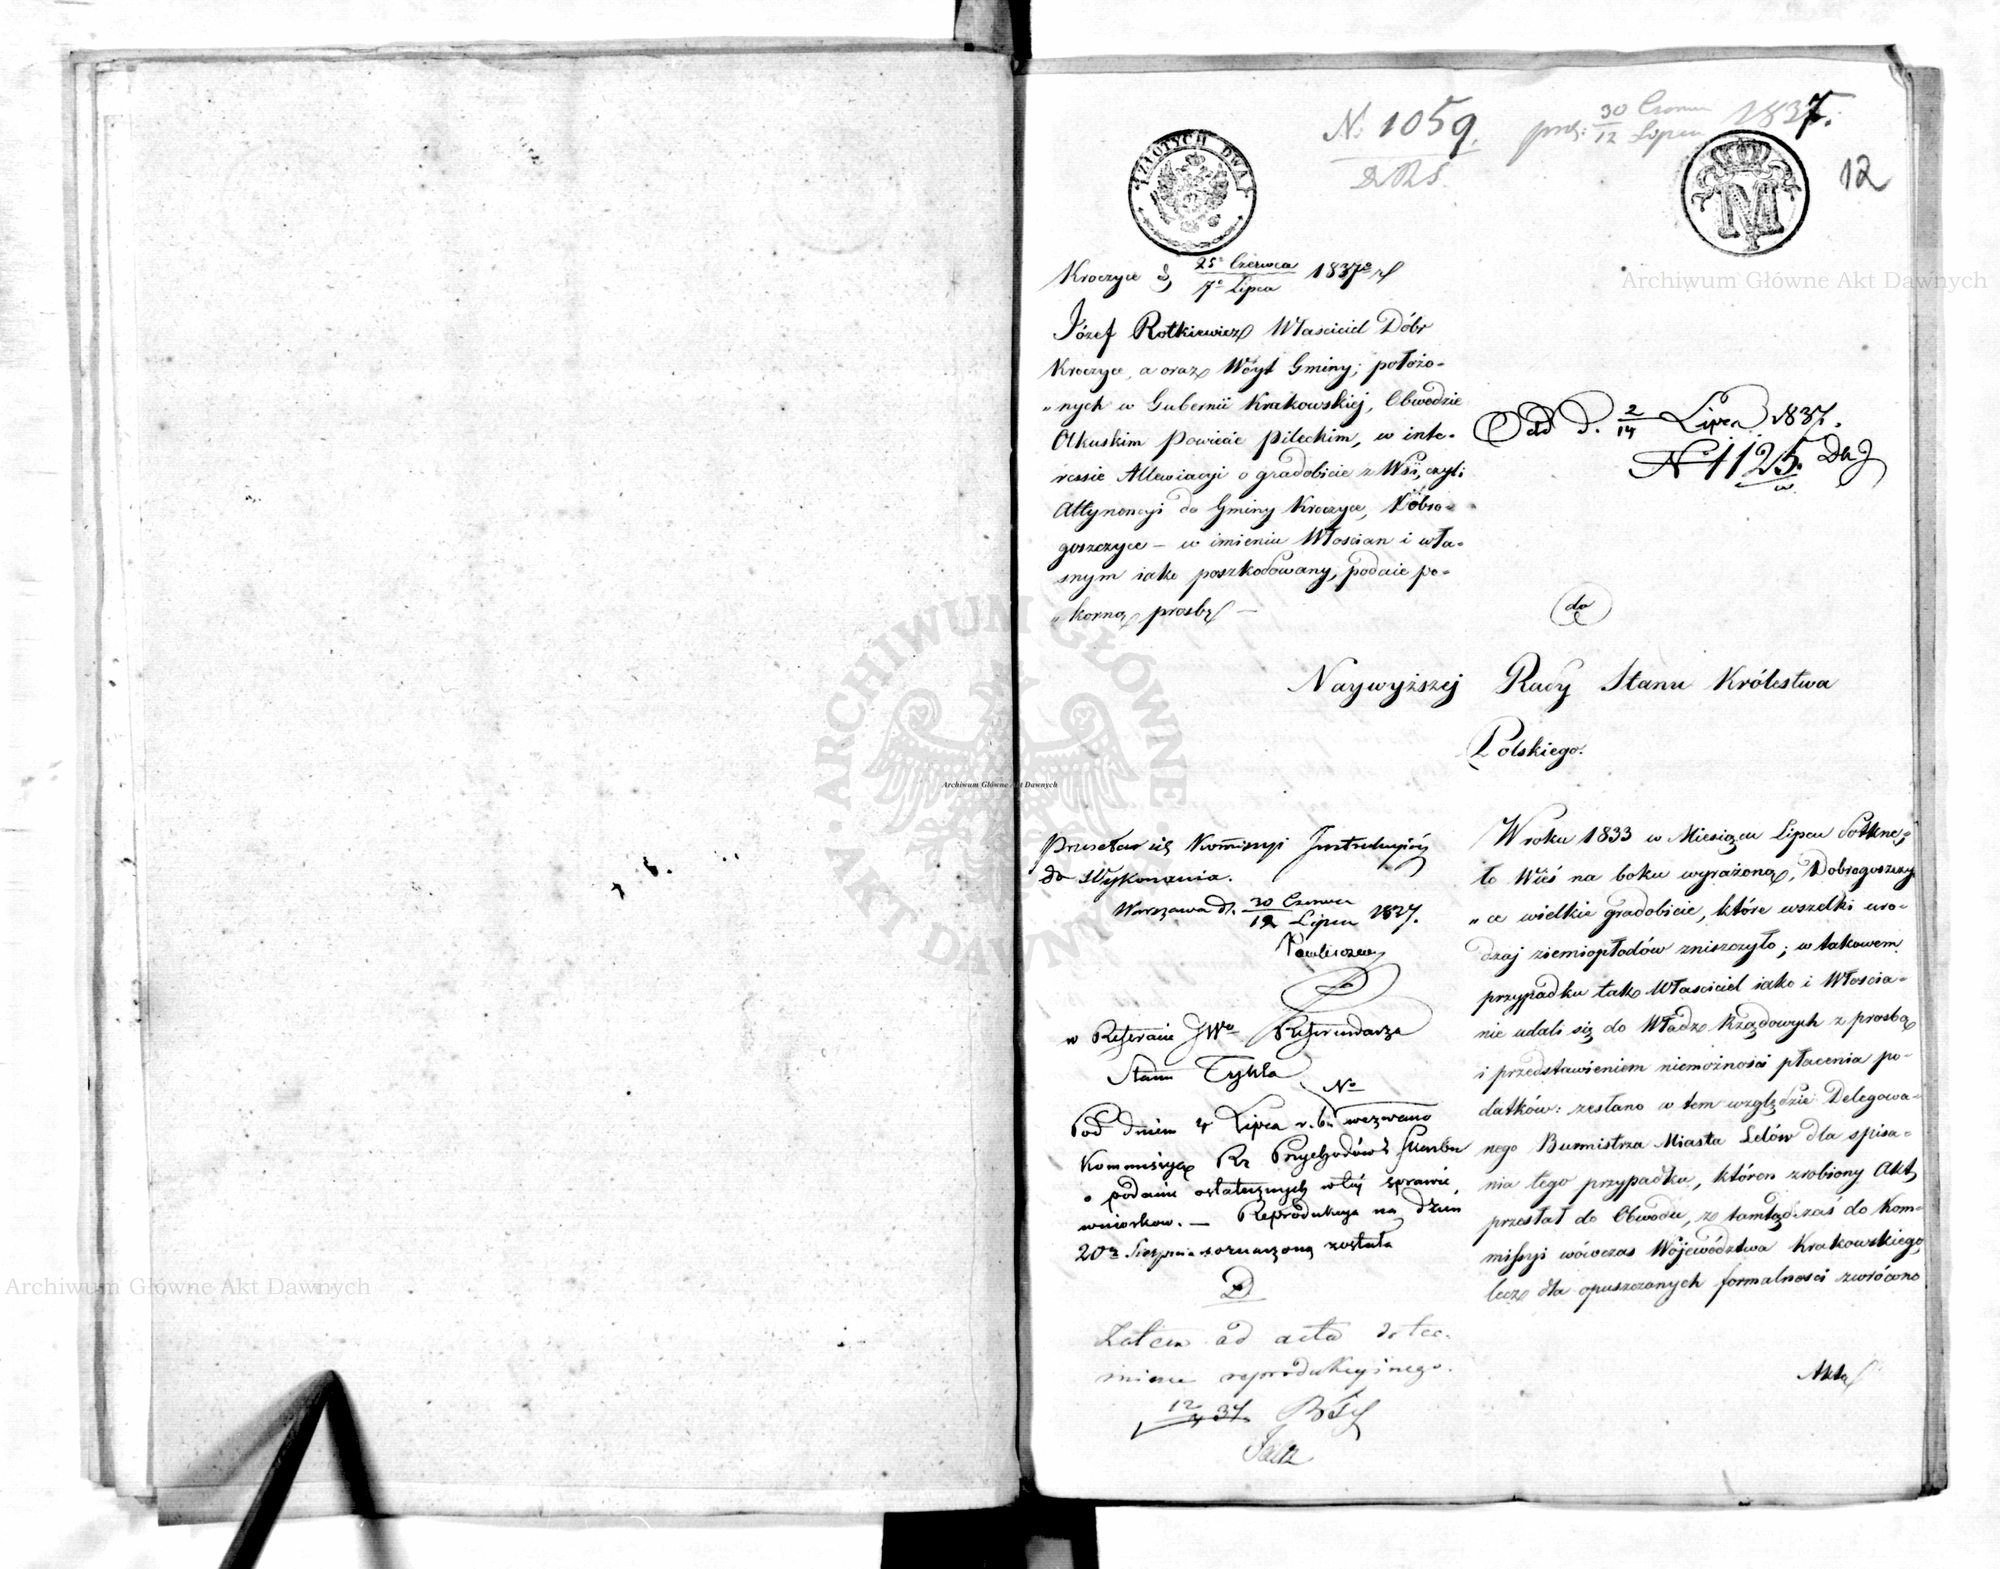 N. 1059.
prod: 30 Czerw / 12 Lipca 1837.
12
ZŁOTYCH DWA
M
Kroczyce d, 25o Czerwca / 7o Lipca 1837o r
Józef Rotkiewicz Własciciel Dóbr
Kroczyce, a oraz Wóyt Gminy; położo-
"nych w Gubernii Krakowskiej, Obwodzie
Olkuskim Powiecie Pileckim, w inte-
ressie Allewiacyi o gradobicie z Wsi, czyli
Attynencyi do Gminy Kroczyce, Dobro-
goszczyce – w imieniu Włoscian i wła-
snym iako poszkodowany, podaie po-
"korną prosbę –
Odd d. 2/14 Lipca 1837.
N 1125.
do
Naywyższej Rady Stanu Królestwa
Polskiego.
Przesław się Kommissyi Instrukcyjney
do Wykonania.
Warszawa d. 30 Czerwca / 12 Lipca 1837.
w Referacie JWo Referendarza
Stanu Tykla
No
Pod dniem 4 Lipca r. b. wezwano
Kommissyą Rz Przychodów i Skarbu
o podanie ostatecznych w tej sprawie
wniosków. — Reprodukcya na dzień
20o Sierpnia oznaczoną została
D
Zalcza ad acta do ter-
minu reprodukcyjnego.
12/7 37.
W roku 1833 w Miesiącu Lipcu dotknę-
ło Wieś na boku wyrażoną, Dobrogoszczy
"ce wielkie gradobicie, które wszelki uro-
dzaj ziemiopłodów zniszczyło; w takowem
przypadku tak Własciciel iako i Włoscia-
nie udali się do Władz Rządowych z prosbą
i przedstawieniem niemożnosci płacenia po-
datków: zesłano w tem względzie Delegowa-
nego Burmistrza Miasta Lelów dla spisa-
nia tego przypadku, któren zrobiony Akt
przesłał do Obwodu, z tamtąd zaś do Kom-
missyi wówczas Województwa Krakowskiego,
lecz dla opuszczonych formalnosci zwrócono
Akta
Archiwum Główne Akt Dawnych
Archiwum Główne Akt Dawnych
Archiwum Główne Akt Dawnych
ARCHIWUM GŁÓWNE AKT DAWNYCH